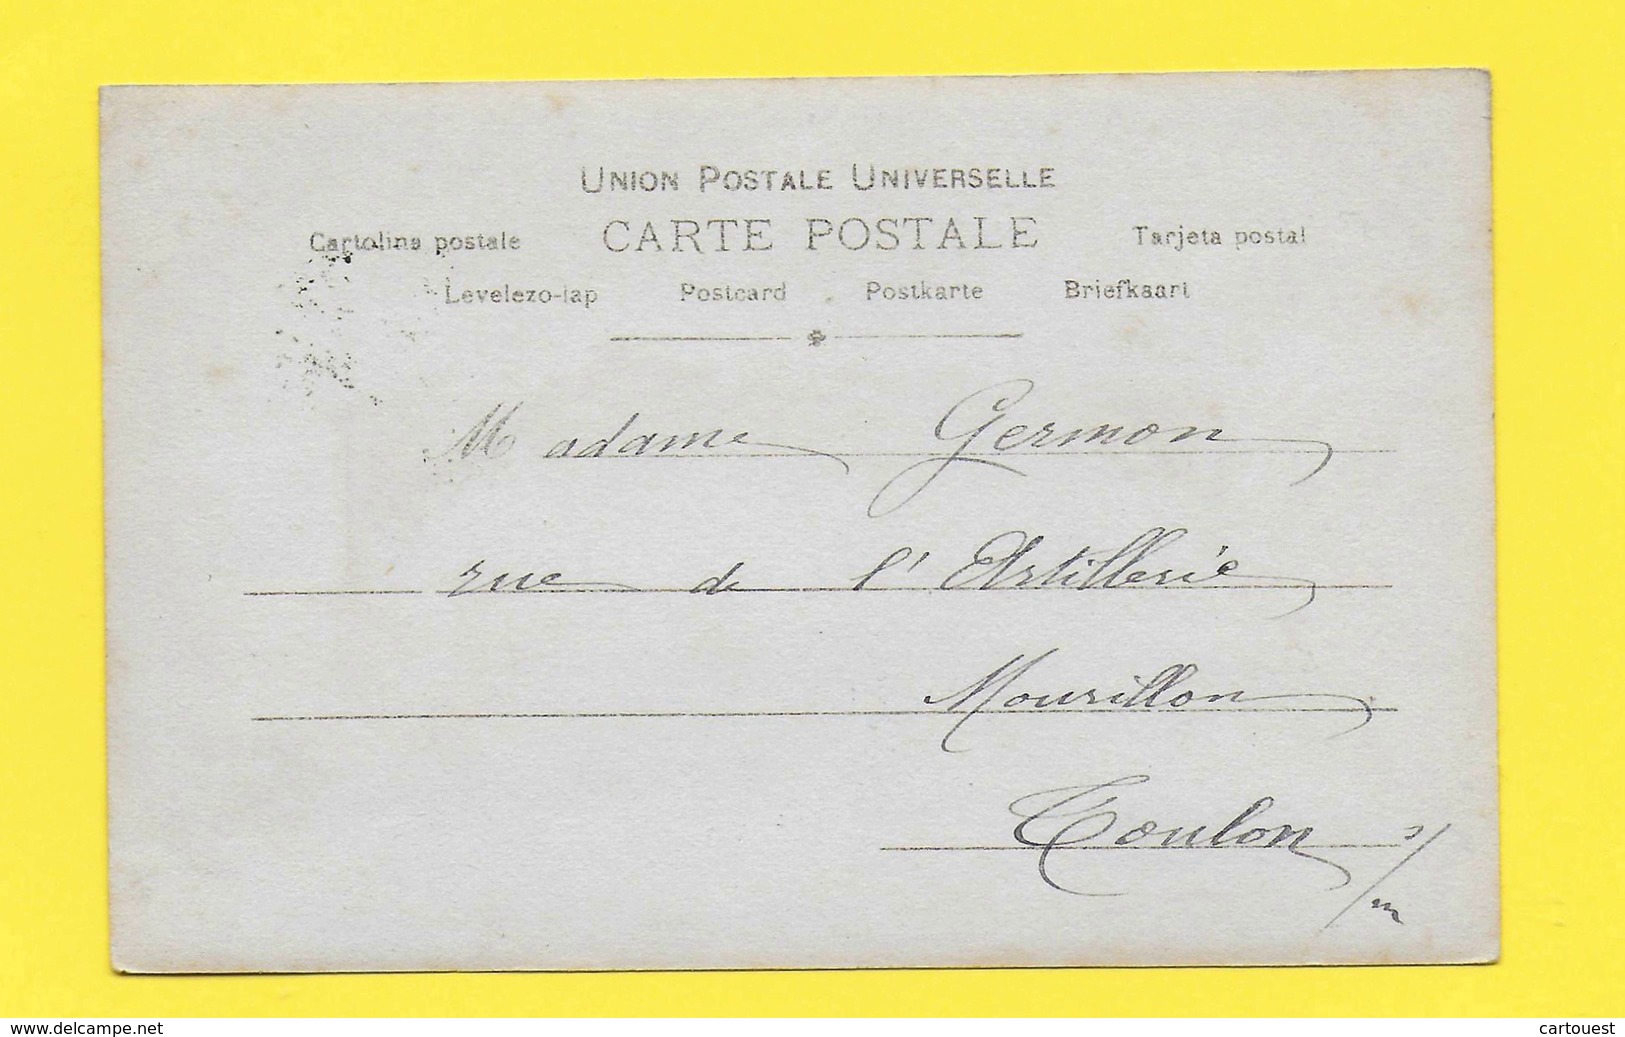 UNION POSTALE UNIVERSELLE
CARTE POSTALE
Cartolina postale Tarjeta postal
Levelezo-lap Postcard Postkarte Briefkaart
Madame Germon
rue de l'Artillerie
Mourillon
Toulon
www.delcampe.net
cartouest